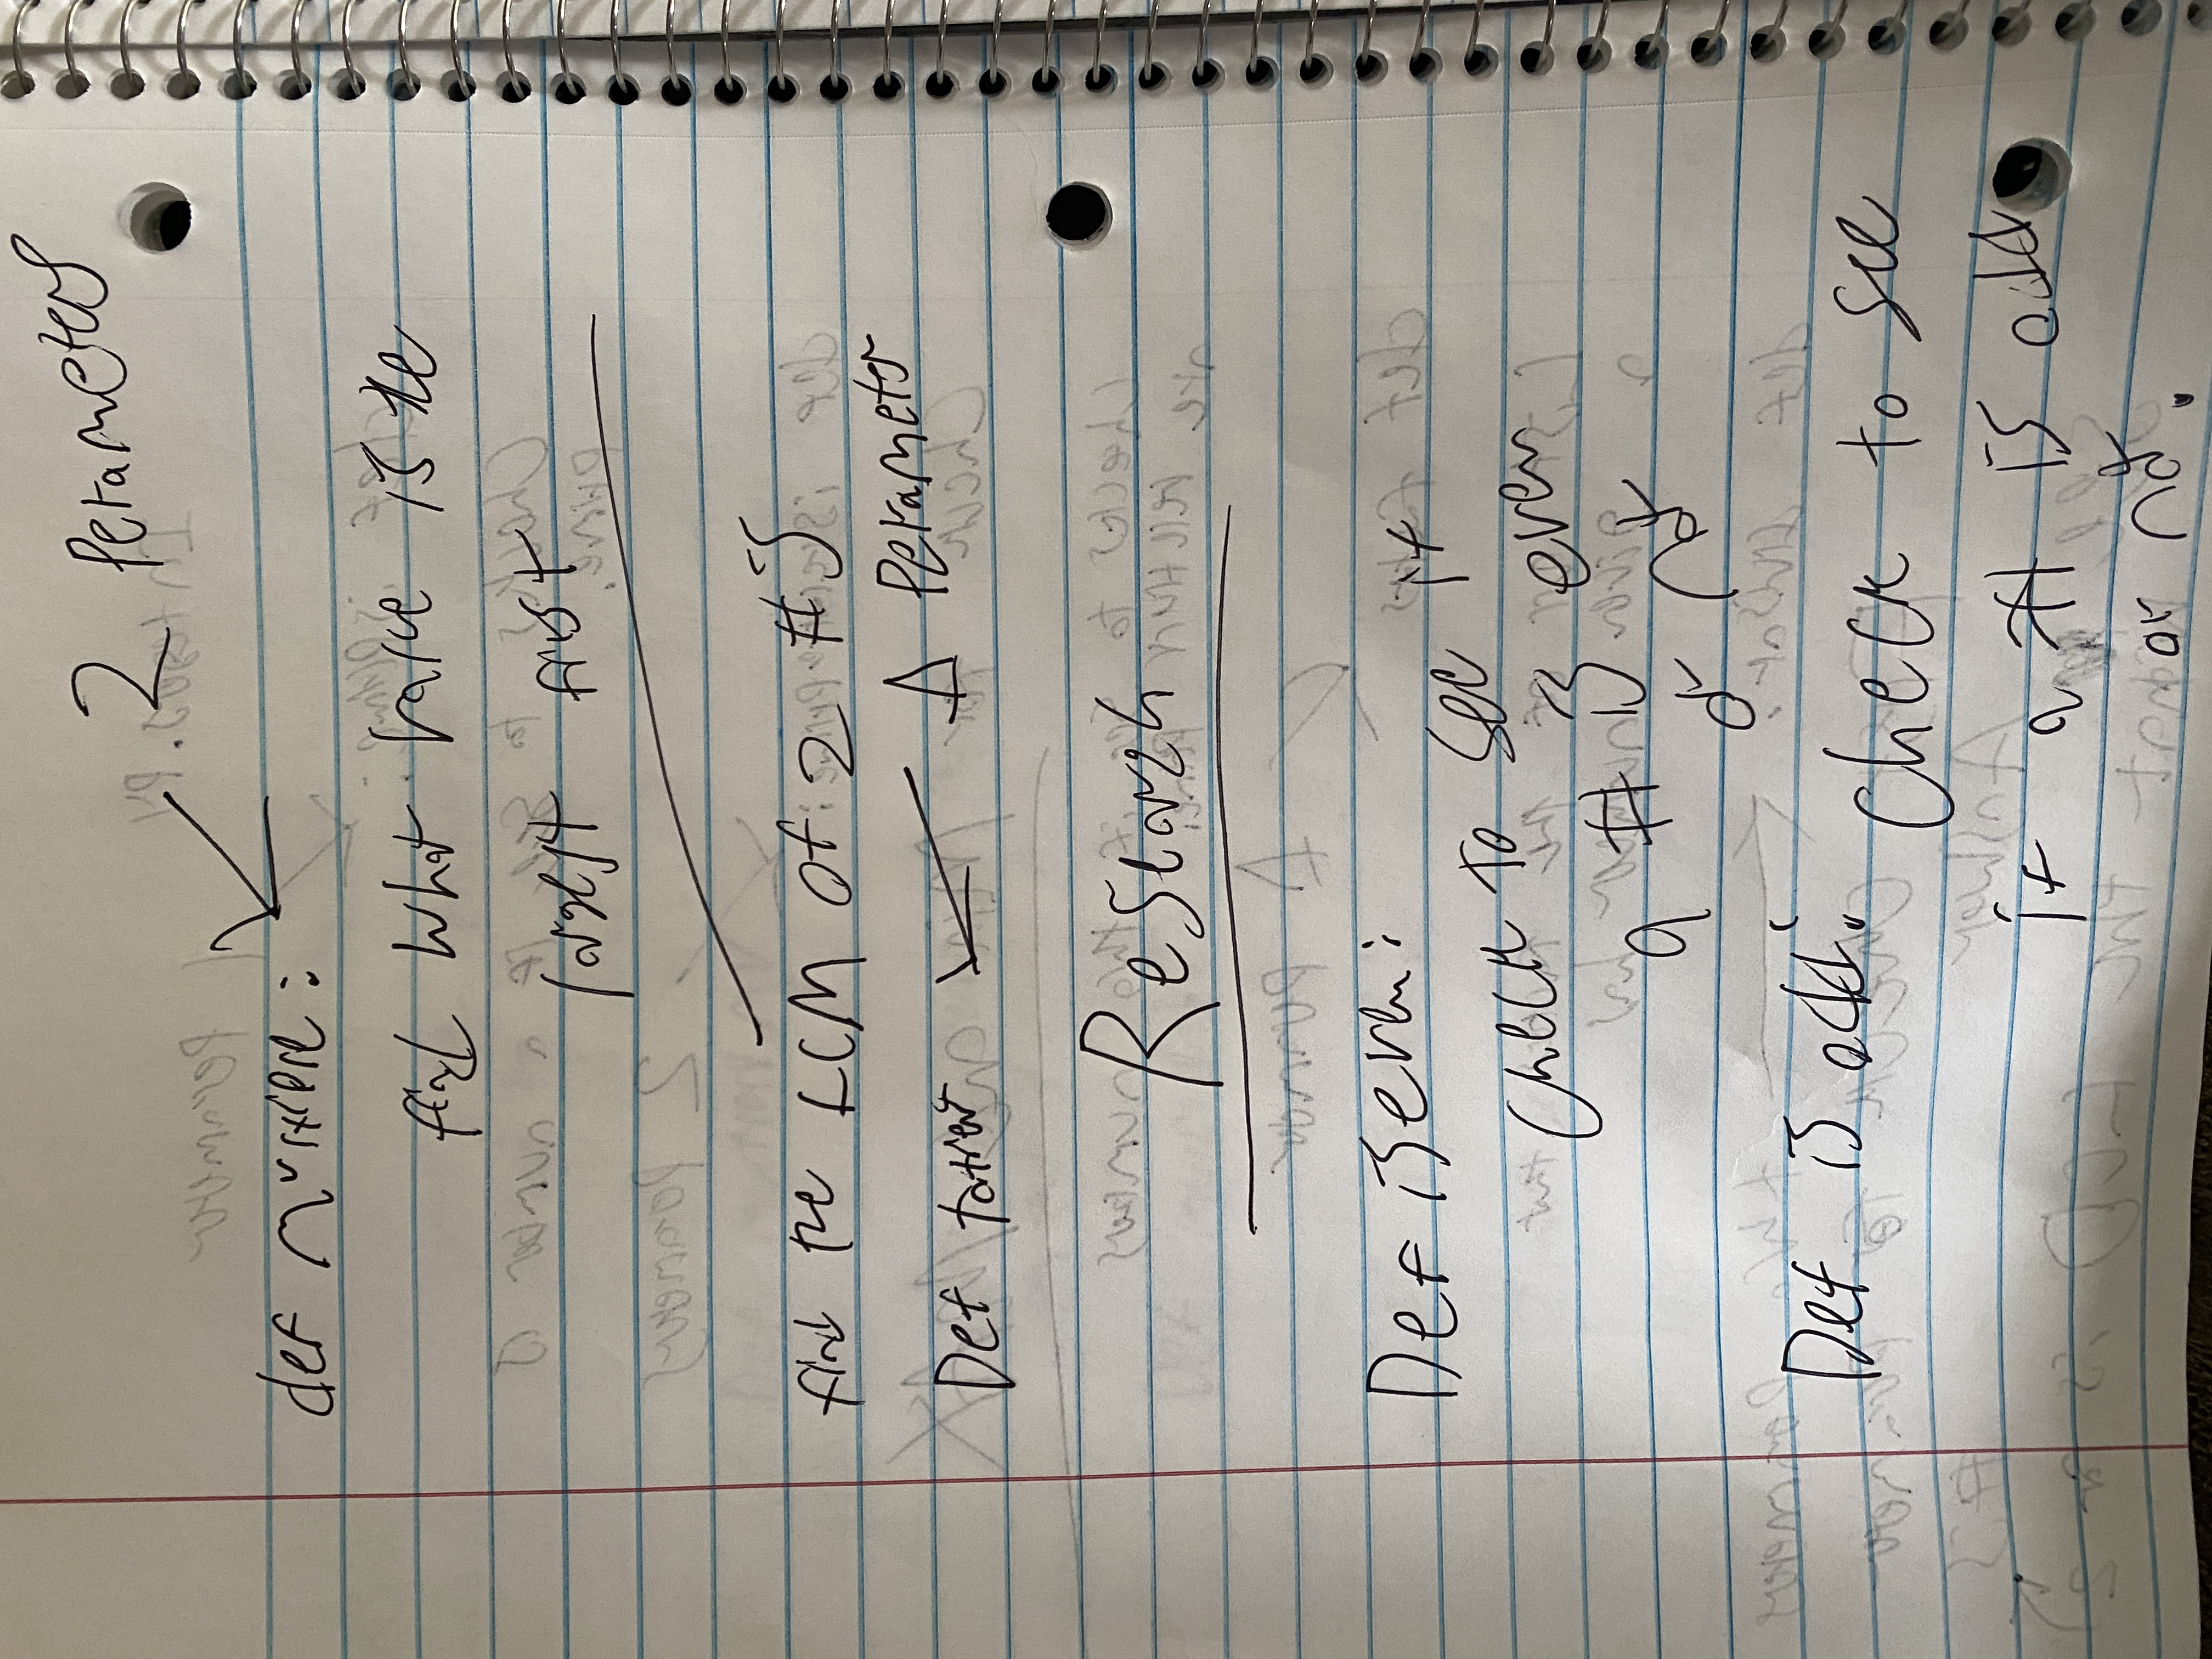 2 Perameters
def multiple:
find what value is the
largest first
find the LCM of 2 #'s
Def totient
1 Perameter
Research
Def iseven:
check to see if
a # is even
or not
Def is odd:
check to see
if a # is odd
or not.